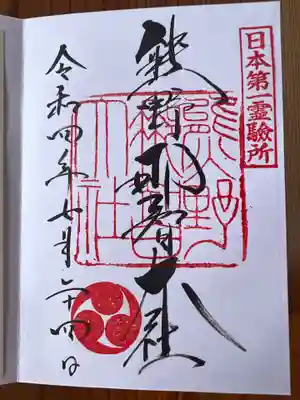 日本第一霊驗所
熊野那智大社
熊野那智大社
令和四年七月二十四日